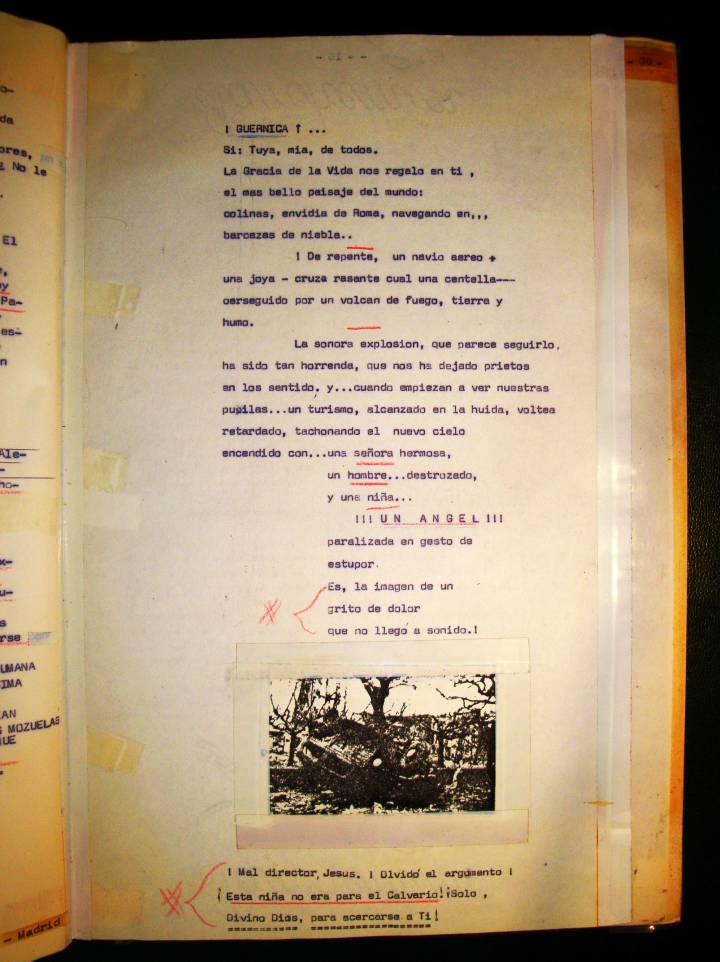 - 16 - -
¡ GUERNICA ! ...
Si: Tuya, mia, de todos.
La Gracia de la Vida nos regalo en ti ,
el mas bello paisaje del mundo:
colinas, envidia de Roma, navegando en,,,
barcazas de niebla..
! De repente, un navio aereo +
una joya - cruza rasante cual una centella---
perseguido por un volcan de fuego, tierra y
humo.
La sonora explosion, que parece seguirlo,
ha sido tan horrenda, que nos ha dejado prietos
en los sentido. y...cuando empiezan a ver nuestras
pupilas...un turismo, alcanzado en la huida, voltea
retardado, tachonando el nuevo cielo
encendido con...una señora hermosa,
un hombre...destrozado,
y una niña...
!!! U N A N G E L !!!
paralizada en gesto de
estupor.
Es, la imagen de un
grito de dolor
que no llegó a sonido.!
! Mal director, Jesus. ! Olvidó el argumento !
¡Esta niña no era para el Calvario! ¡Solo ,
Divino Dios, para acercarse a Ti!
- 30 -
o-
da
ores,
No le
El
Pa-
es-
n
Ale-
ho-
x-
u-
s
rse
UMANA
SIMA
AN
S MOZUELAS
QUE
- Madrid